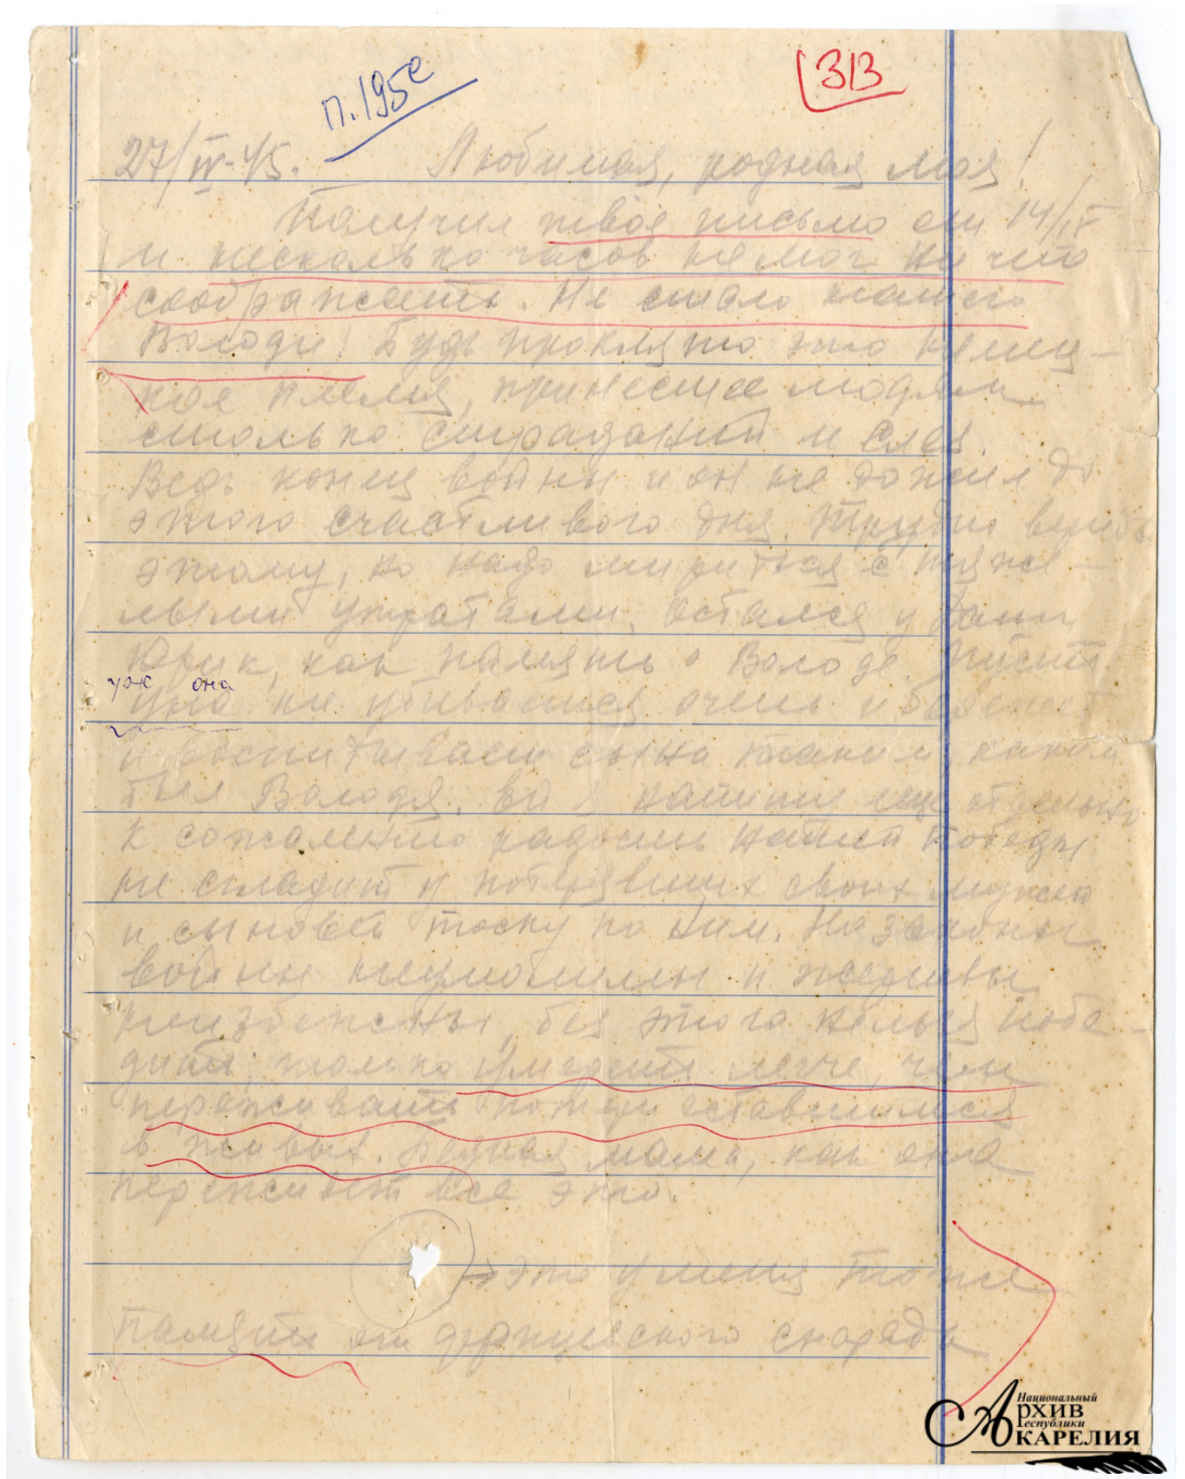 п. 195е
313
27/IV-45. Любимая, родная моя!
Получил твое письмо от 14/IV
и несколько часов не мог ничего
соображать. Не стало нашего
Володи! Будь проклято это немец-
кое племя, принесшее людям
столько страданий и слез.
Ведь конец войны и он не дожил до
этого счастливого дня. Трудно верить
этому, но надо мириться с тяже-
лыми утратами. Остался у
Юрик, как память о Володе. Пусть
уж она
не убивается очень и
и воспитывает сына таким каким
был Володя. Ей я напишу еще отдельно
К сожалению радость нашей победы
не сгладит у потерявших своих мужей
и сыновей тоску по ним. Но законы
войны неумолимы и жертвы
неизбежны, без этого нельзя побе-
дить, только умереть легче, чем
переживать потери оставшимся
в живых. Бедная мама, как она
переживет все это.
это у меня тоже
память от французского снаряда
Национальный
Архив
Республики
Карелия